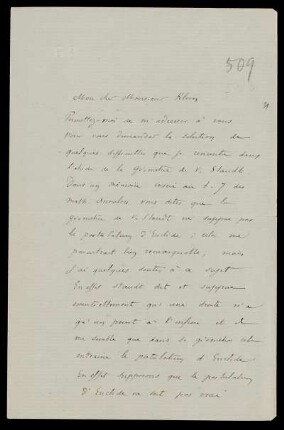 509
Mon cher Monsieur Klein
Permettez moi de m'adresser à vous
pour vous demander la solution de
quelques difficultés que je rencontre dans
l'étude de la géométrie de V. Staudt
Dans un mémoire
math. Annalen vous dites que la
géométrie de V. Staudt ne suppose pas
le postulatum d'Euclide : cela me
paraîtrait bien remarquable, mais
j'ai quelques doutes à ce sujet
En effet Staudt dit et suppose
essentiellement qu'une droite n'a
qu'un point à l'infini et il
me semble que dans la géométrie cela
entraine le postulatum d'Euclide
En effet supposons que le postulatum
d'Euclide ne soit pas vrai